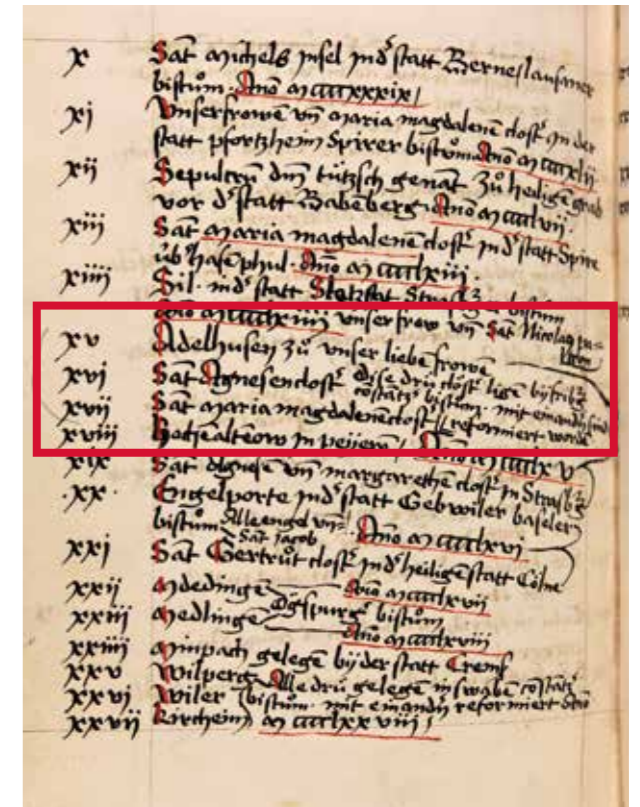 x Sāt Michels jnsel jn dˢ statt Berneslausaner
bistům. Año M ccccxxxix /
xj Vnserfrowē vn̄ Maria magdalenē clostˢ jn der
statt pfortzheim Spirer bistům Año M ccccxlij
xij Sepulcrū dm̄ tützsch genāt zů heiligē grab
vor dˢ statt Babēberg Año M cccclvij.
xiij Sāt Maria magdalenē clostˢ jn dˢ statt Spire
üb hasēphul. Año M cccclxiij.
xiiij Sil. in dˢ statt Sletzstat bistum
Año M cccclxiiij vnser frow vn̄ Sāt Nicolaꝫ
xv Adelhusen zů vnser liebē frowē
xvj Sāt Agnesenclostˢ Dise drü clostˢ ligē bij fribˢg
costātzˢ bistům. mit einandˢ sind
xvij Sāt Maria magdalenēclostˢ reformiert wordē
xviij in peijern / Año M cccclxv
xix Sāt Agnese vn̄ margarethē clostˢ jn Strasbˢg
.xx. Engelporte jn dˢ statt Gebwiler baseler
bistům Alle engel vn̄ Sāt jacob Año M cccclxvj
xxj Sāt Gertrůt clostˢ jn dˢ heiligē statt Cölne
Año M cccclxvij
xxij Medingē Ogspurgˢ bistům
xxiij Medlingē Año M cccclxviij
xxiiij Minpach gelegē bij der statt Crems
xxv Wilperg Alle drü gelegē in swabē costātzˢ
xxvj Wiler bistům. mit einandˢ reformiert Año
xxvij Kircheim M cccclxxviij /